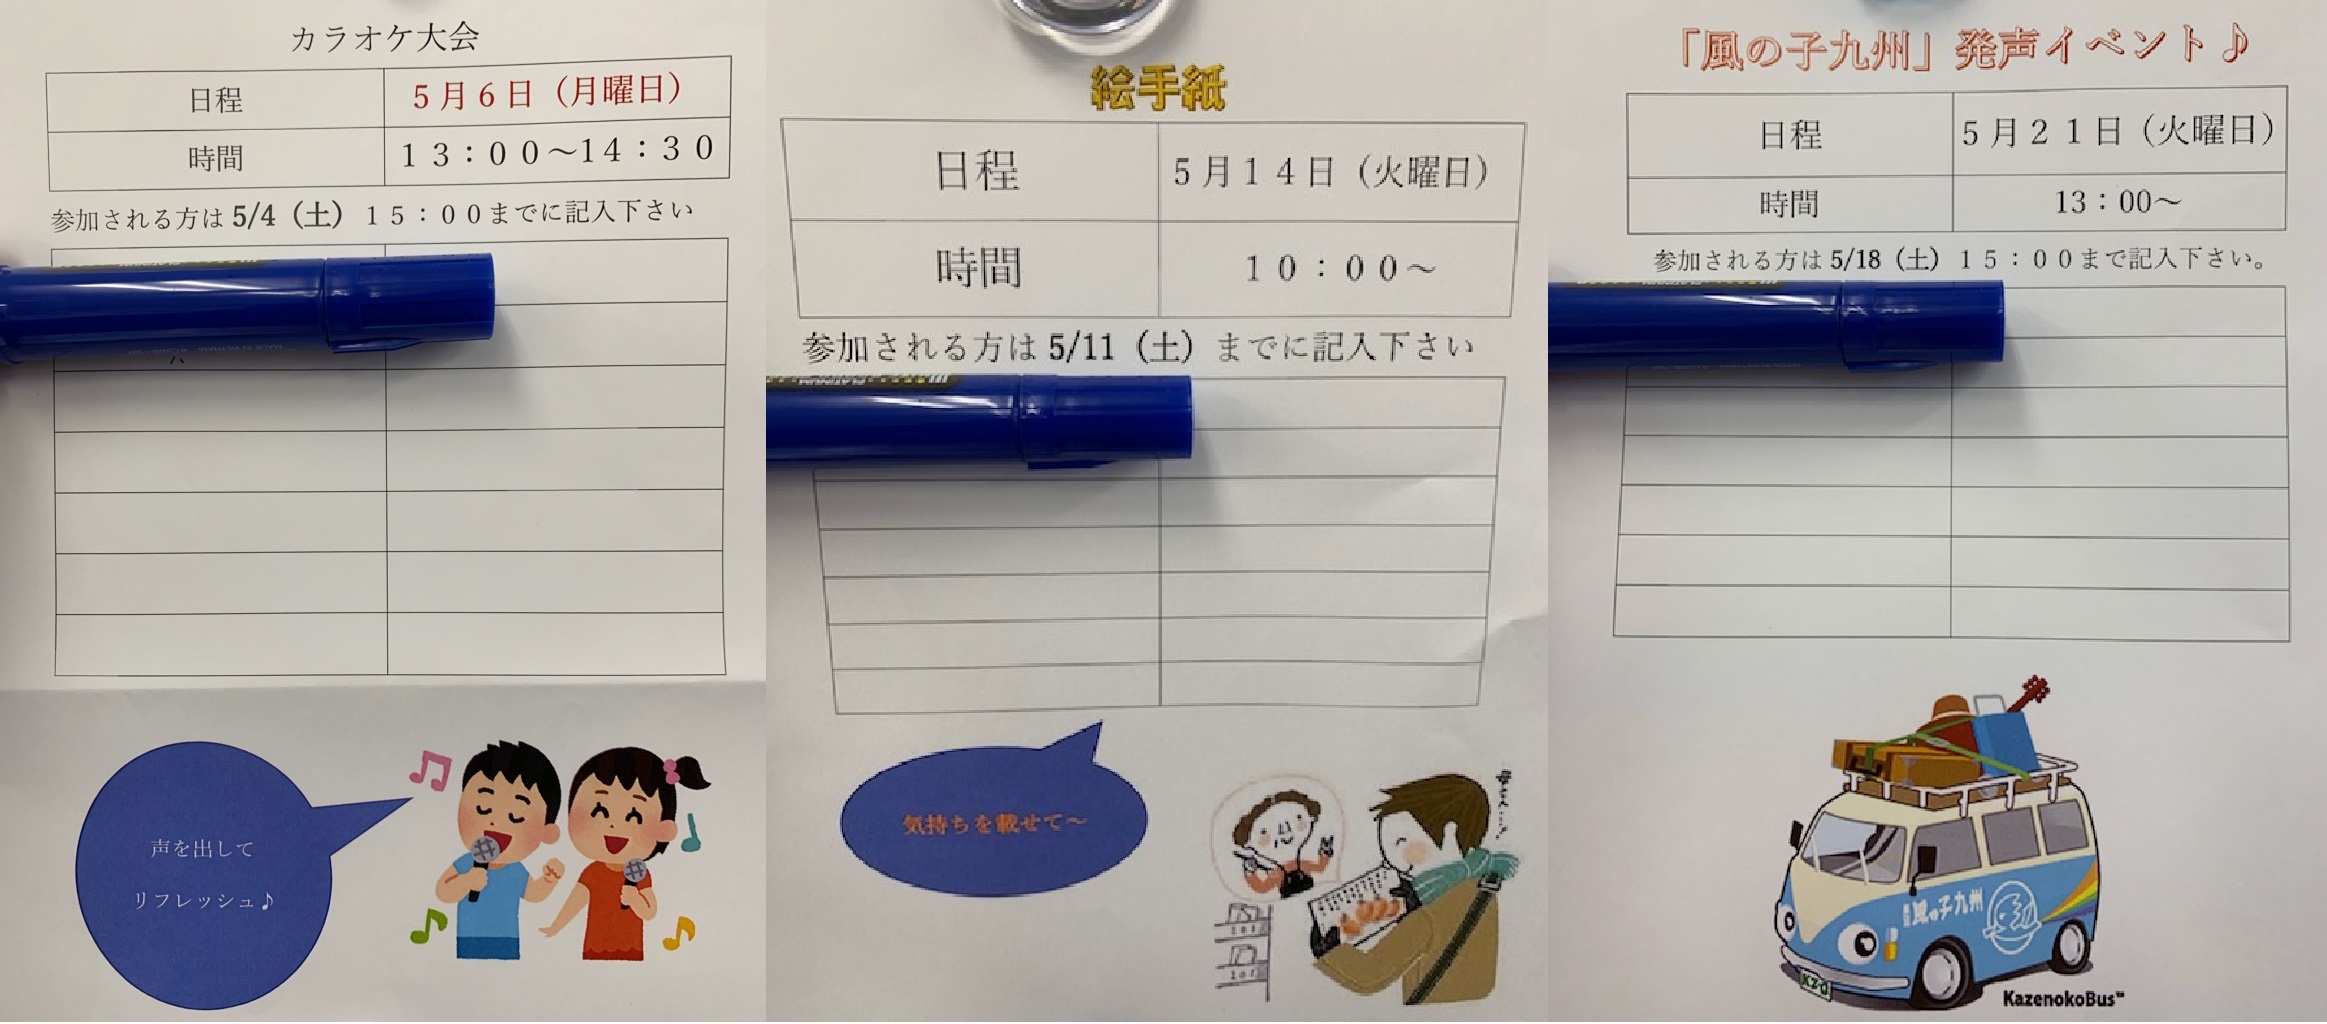 カラオケ大会
日程 5月6日（月曜日）
時間 13：00～14：30
参加される方は 5/4（土）15：00までに記入下さい
声を出して
リフレッシュ♪
絵手紙
日程 5月14日（火曜日）
時間 10：00～
参加される方は 5/11（土）までに記入下さい
気持ちを載せて～
「風の子九州」発声イベント♪
日程 5月21日（火曜日）
時間 13：00～
参加される方は 5/18（土）15：00まで記入下さい。
風の子九州
KazenokoBus™